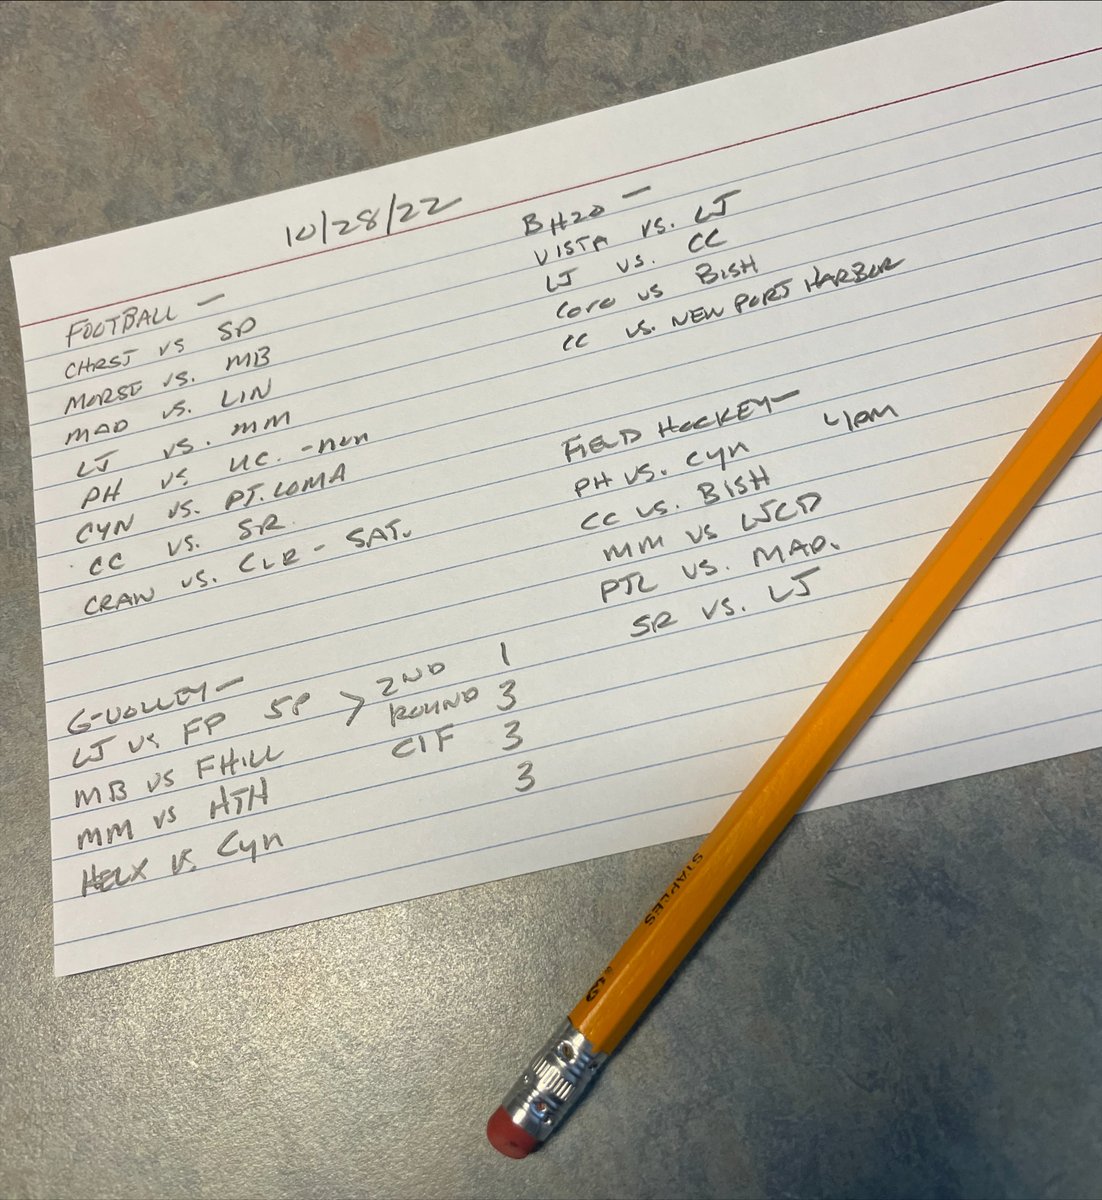 10/28/22
FOOTBALL —
CHRST vs SP
MORSE vs. MB
MAD vs. LIN
LJ vs. MM
PH vs UC. -
CYN vs. PT. LOMA
CC vs. SR
CRAW vs. CLR - SAT.
G-VOLLEY —
LJ vs FP 5P > 2ND 1
MB vs FHILL ROUND 3
MM vs HTH CIF 3
HELX vs. Cyn 3
BH20 —
VISTA vs. LJ
LJ vs. CC
CORO vs BISH
CC vs. NEW PORT HARBOR
FIELD HOCKEY —
PH vs. Cyn 4pm
CC vs. BISH
MM vs LJCD
PTL vs. MAD.
SR vs. LJ
STAPLES